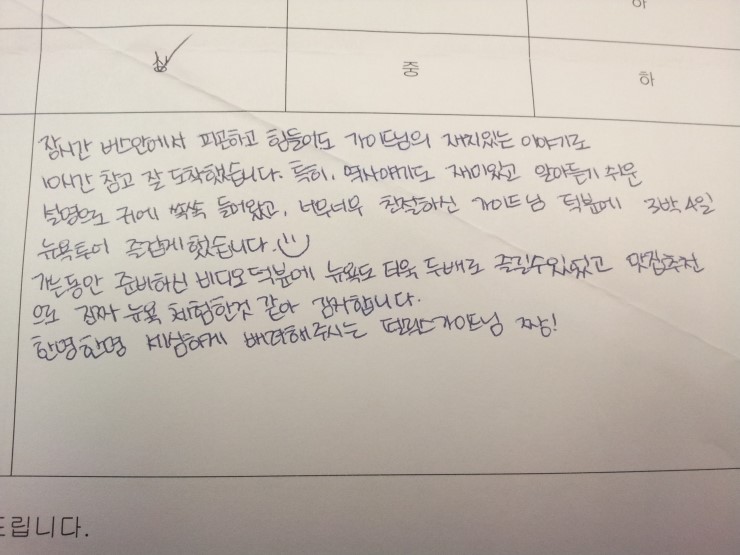 하
상 중 하
장시간 버스안에서 피곤하고 힘들어도 가이드님의 재치있는 이야기로
10시간 참고 잘 도착했습니다. 특히, 역사얘기도 재미있고 알아듣기 쉬운
설명으로 귀에 쏙쏙 들어왔고, 너무너무 친절하신 가이드님 덕분에 3박4일
뉴욕투어 즐겁게 했습니다.
가는동안 준비하신 비디오덕분에 뉴욕도 더욱 두배로 즐길수있었고 맛집추천
으로 진짜 뉴욕 체험한것 같아 감사합니다.
한명한명 세심하게 배려해주시는 가이드님 짱!
드립니다.